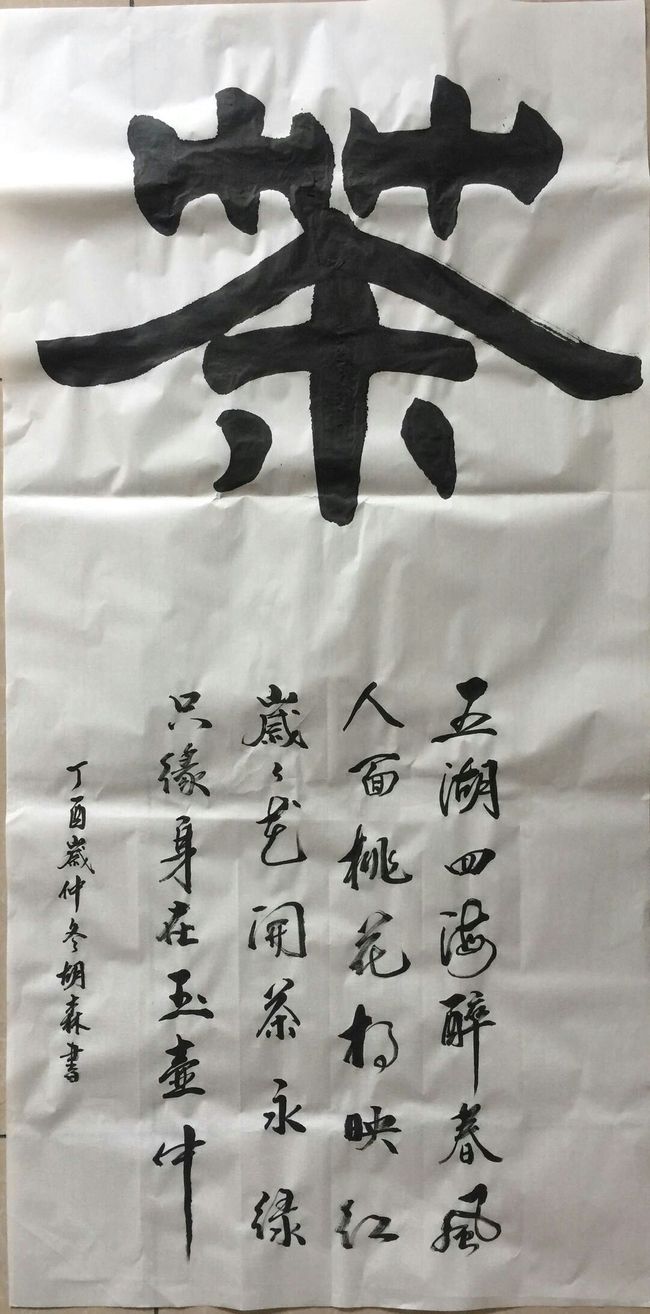 茶
五湖四海醉春風
人面桃花相映红
歲々花開茶永緑
只緣身在玉壺中
丁酉歲仲冬胡森書